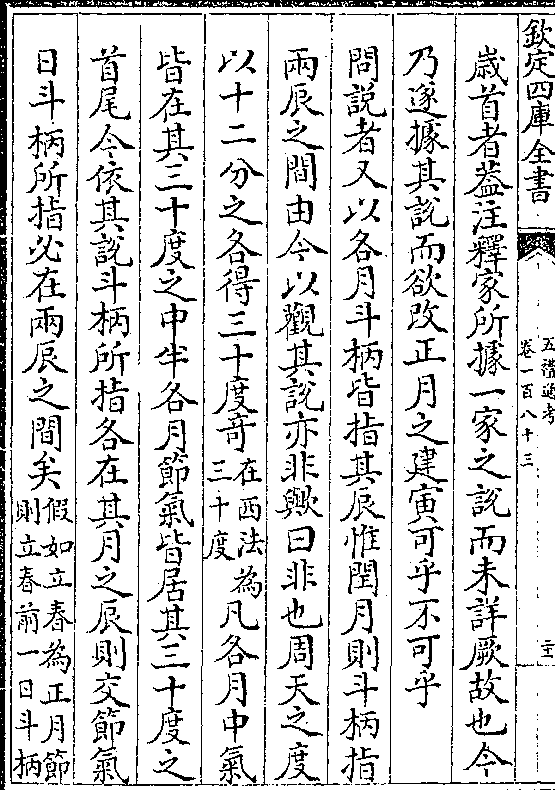 欽定四庫全書
五禮通考
卷一百八十三
歲首者葢注釋家所據一家之説而未詳厥故也今
乃遂據其説而欲改正月之建寅可乎不可乎
問説者又以各月斗柄皆指其辰惟閏月則斗柄指
兩辰之間由今以觀其説亦非歟曰非也周天之度
以十二分之各得三十度竒在西法為三十度凡各月中氣
皆在其三十度之中半各月節氣皆居其三十度之
首尾今依其説斗柄所指各在其月之辰則交節氣
日斗柄所指必在兩辰之間矣假如立春為正月節則立春前一日斗柄